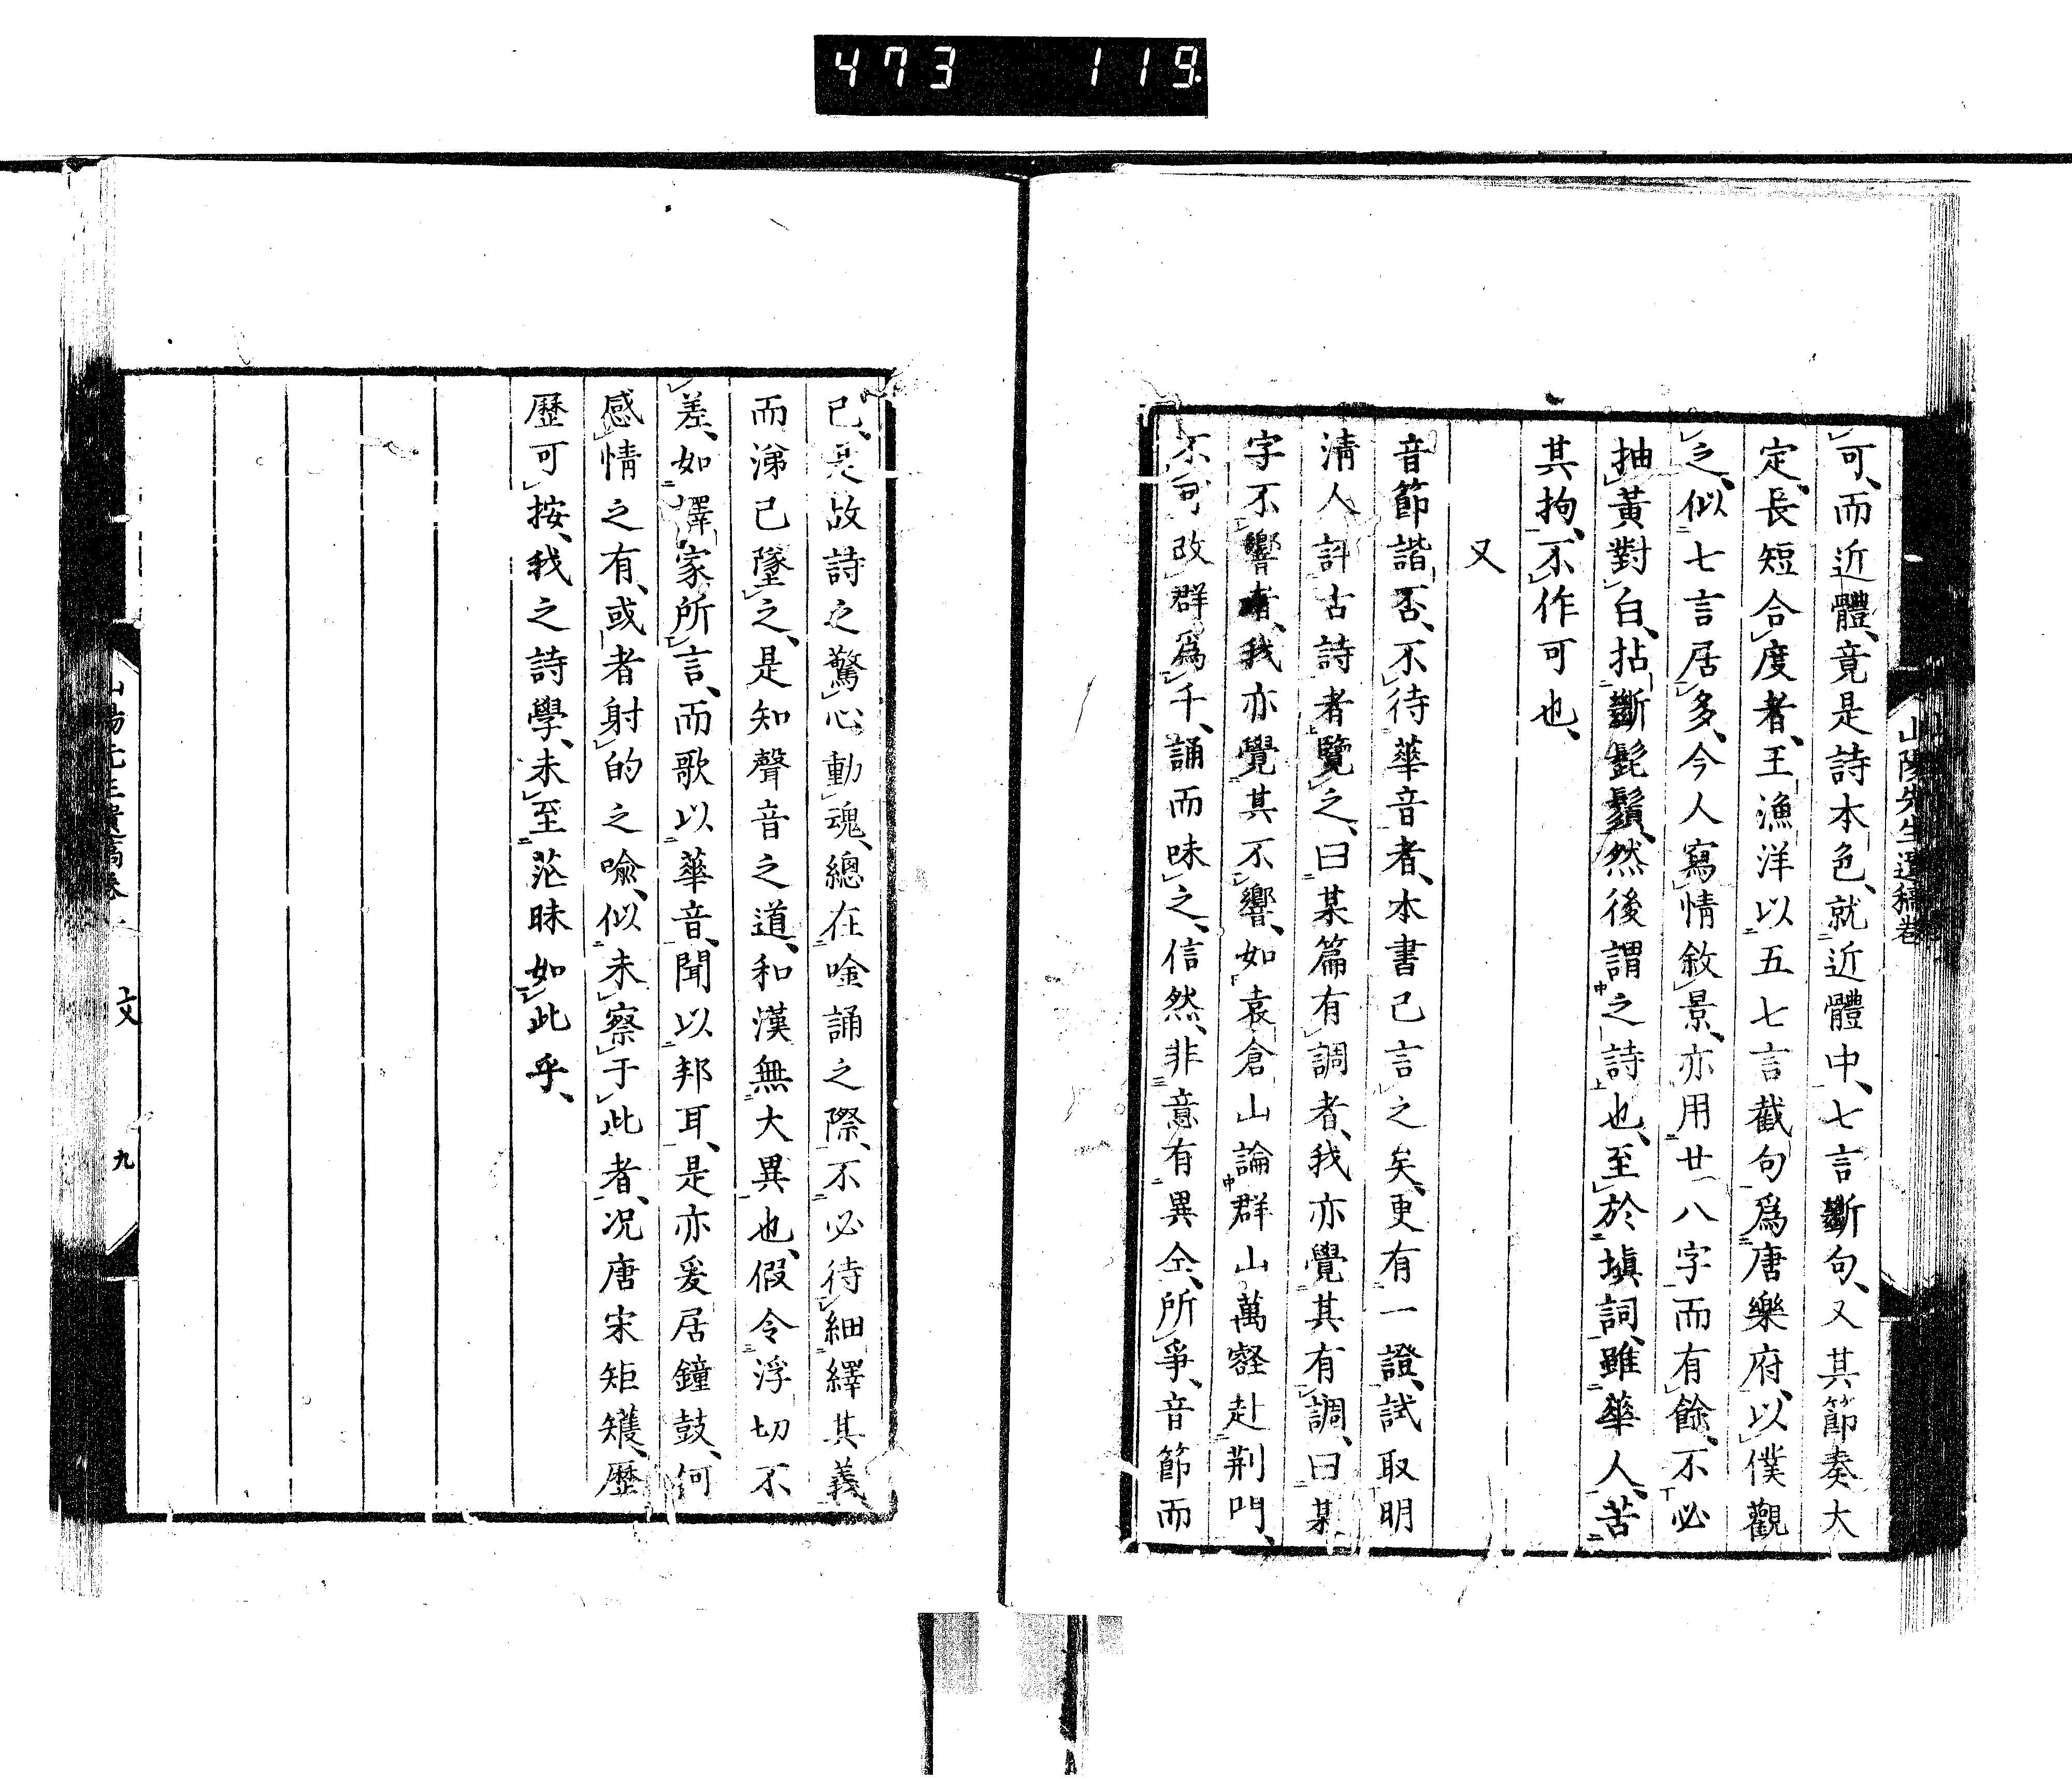 473 119
山陽先生遺稿卷
可、而近體、竟是詩本色、就近體中、七言斷句、又其節奏大
定、長短合度者、王漁洋以五七言截句爲唐樂府、以僕觀
之、似七言居多、今人寫情敘景、亦用廿八字而有餘、不必
抽黃對白、拈斷髭鬚、然後謂之詩也、至於塡詞、雖華人、苦
其拘、不作可也、
又
音節諧否、不待華音者、本書已言之矣、更有一證、試取明
淸人評古詩者覽之、曰某篇有調者、我亦覺其有調、曰某
字不響者、我亦覺其不響、如袁倉山論群山萬壑赴荆門、
不可改群爲千、誦而味之、信然、非意有異仝、所爭、音節而
已、是故詩之驚心動魂、總在唫誦之際、不必待細繹其義
而涕已墜之、是知聲音之道、和漢無大異也、假令浮切不
差、如譯家所言、而歌以華音、聞以邦耳、是亦爰居鐘鼓、何
感情之有、或者射的之喩、似未察于此者、况唐宋矩矱、歷
歷可按、我之詩學、未至茫昧如此乎、
山陽先生遺稿卷 文 九